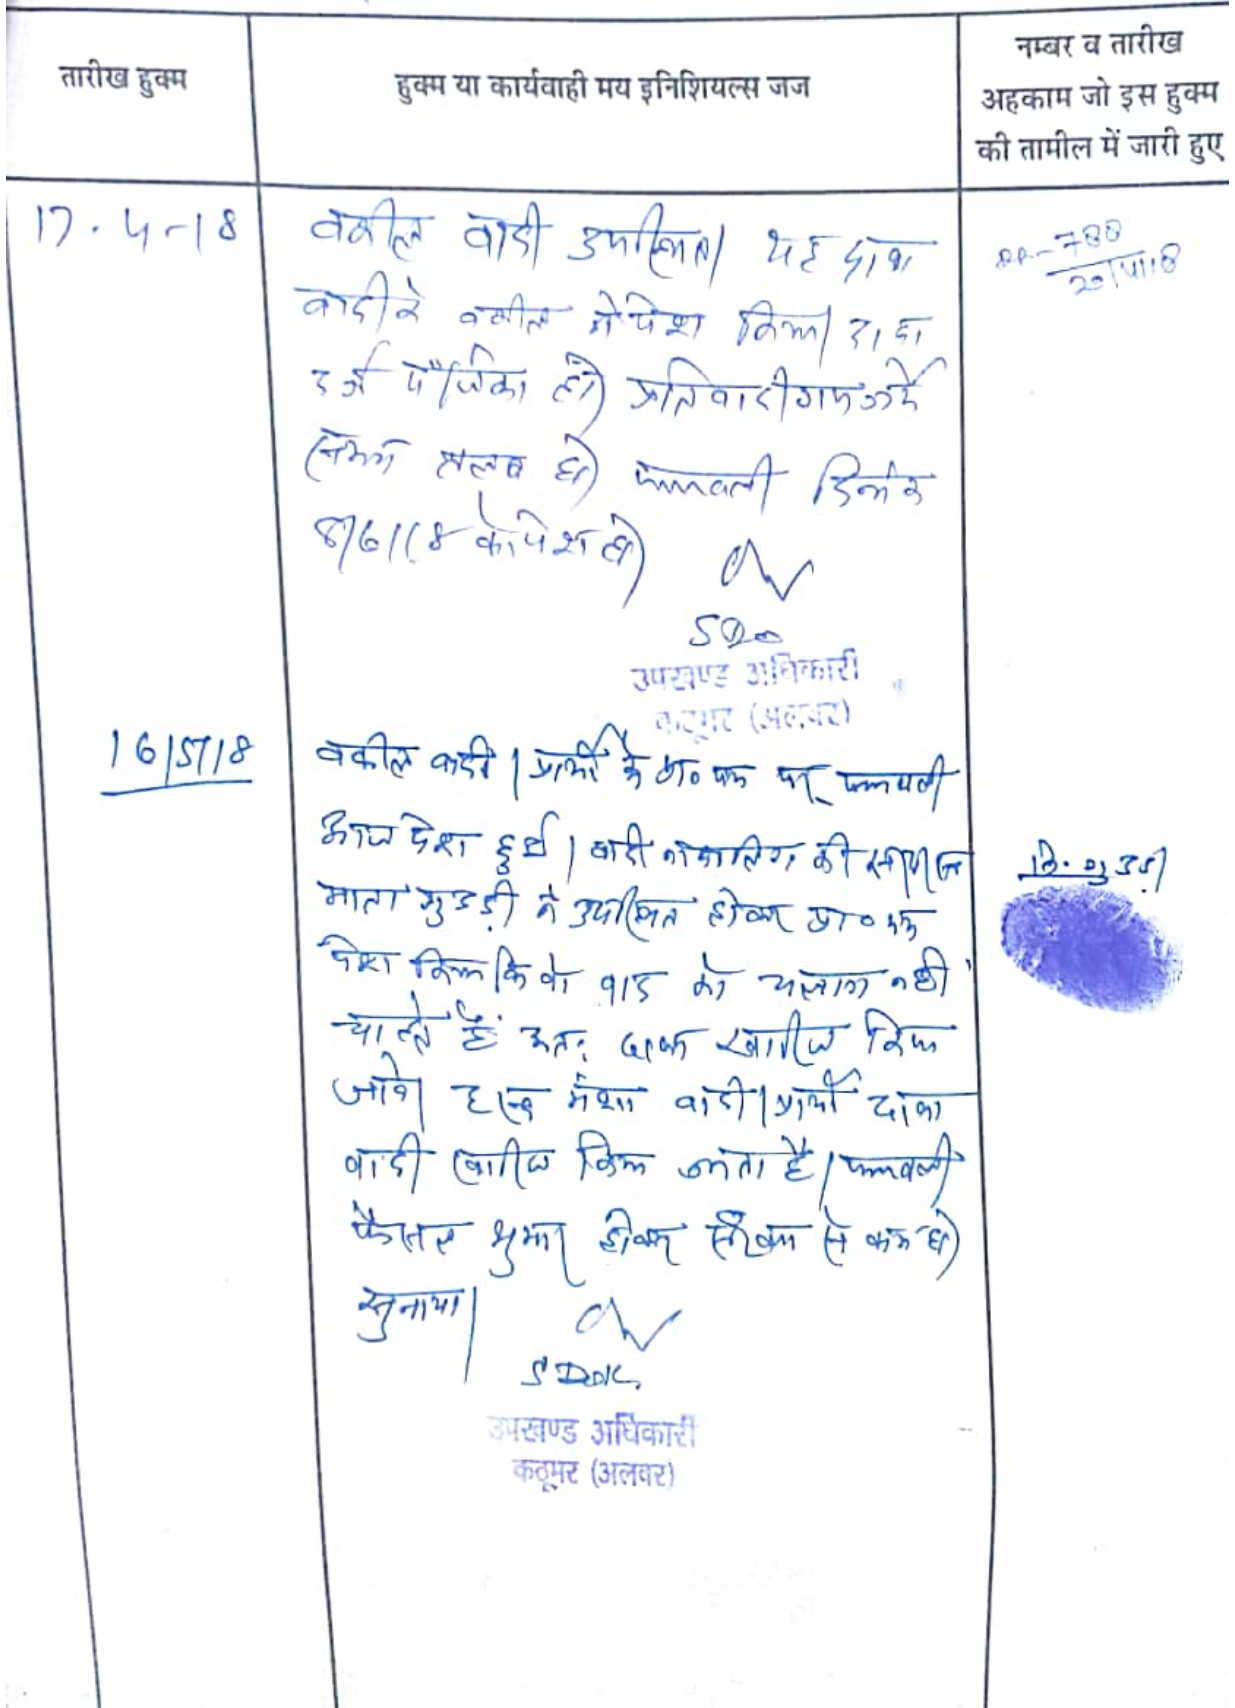 तारीख हुक्म
हुक्म या कार्यवाही मय इनिशियल्स जज
नम्बर व तारीख
अहकाम जो इस हुक्म
की तामील में जारी हुए
17.4-18
वकील वादी उपस्थित। यह दावा
वादी के वकील ने पेश किया। दावा
दर्ज पंजिका हो। प्रतिवादीगण जर्ये
सम्मन तलब हो। पत्रावली दिनांक
8/6/18 को पेश हो।
788
20/4/18
SDO
उपखण्ड अधिकारी
कठूमर (अलवर)
16/5/18
वकील वादी। प्रार्थी के प्रा० पत्र पर पत्रावली
आज पेश हुई। वादी नाबालिग की
माता गुड्डी ने उपस्थित होकर प्रा० पत्र
पेश किया कि वो वाद को चलाना नही
चाहते हैं अतः दावा खारीज किया
जावे। मंशा वादी। प्रार्थी दावा
वादी खारीज किया जाता है। पत्रावली
फैसल शुमार होकर से कम हो।
सुनाया।
नि. गुड्डी
उपखण्ड अधिकारी
कठूमर (अलवर)